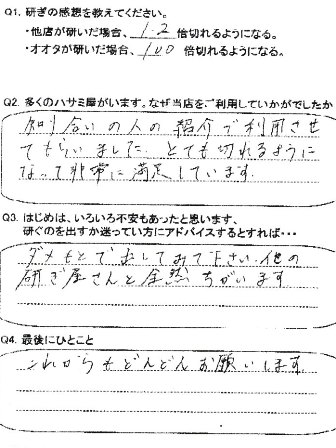 Q1. 研ぎの感想を教えてください。
・他店が研いだ場合、1.2 倍切れるようになる。
・オオタが研いだ場合、100 倍切れるようになる。
Q2. 多くのハサミ屋がいます。なぜ当店をご利用していかがでしたか
知り合いの人の紹介で利用させ
てもらいました。とても切れるように
なって非常に満足しています。
Q3. はじめは、いろいろ不安もあったと思います、
研ぐのを出すか迷ってい方にアドバイスするとすれば・・・
ダメもとで出してみて下さい。他の
研ぎ屋さんと全然ちがいます
Q4. 最後にひとこと
これからもどんどんお願いします